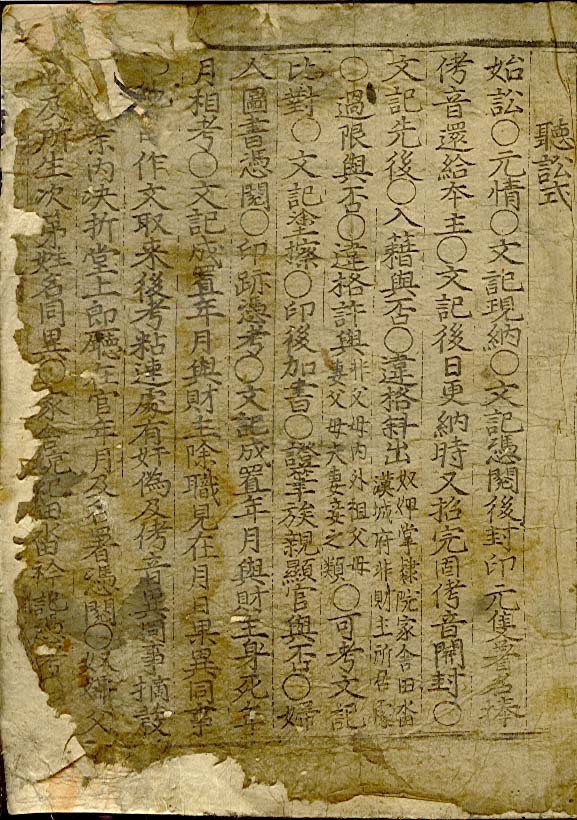 聽訟式
始訟○元情○文記現納○文記憑閱後封印元隻着名捧
侤音還給本主○文記後日更納時又招完固侤音開封○
文記先後○入籍與否○違格科出奴婢掌隸院家舍田畓漢城府非財主所居
○過限與否○違格許與非父母內外祖父母妻父母夫妻妾之類○可考文記
比對○文記塗擦○印後加書○證筆族親顯官與否○婦
人圖書憑閱○印跡憑考○文記成置年月與財主身死年
月相考○文記成置年月與財主除職見在月日果異同事
作文取來後考粘連處有奸僞及侤音異同事摘設
案內决折堂上郞廳在官年月及着署憑閱○奴婢父
及所生次第姓名同異○家舍